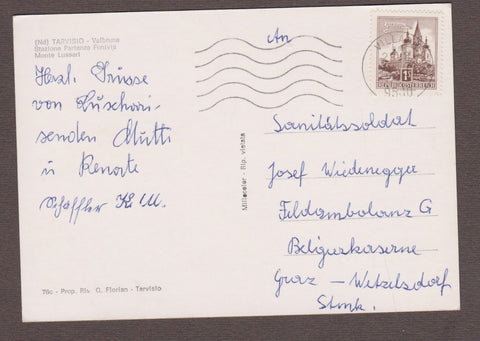 (Nd) TARVISIO - Valbruna
Stazione Partenza Funivia
Monte Lussari
Herzl. Grüsse
von Luschari
senden Mutti
u Renate
An
REPUBLIK ÖSTERREICH
Sanitätssoldat
Josef Wiedenegger
Feldambulanz G
Belgierkaserne
Graz – Wetzelsdorf
Stmk.
Millecolor - Rip. vietata
76c - Prop. Ris. G. Florian - Tarvisio